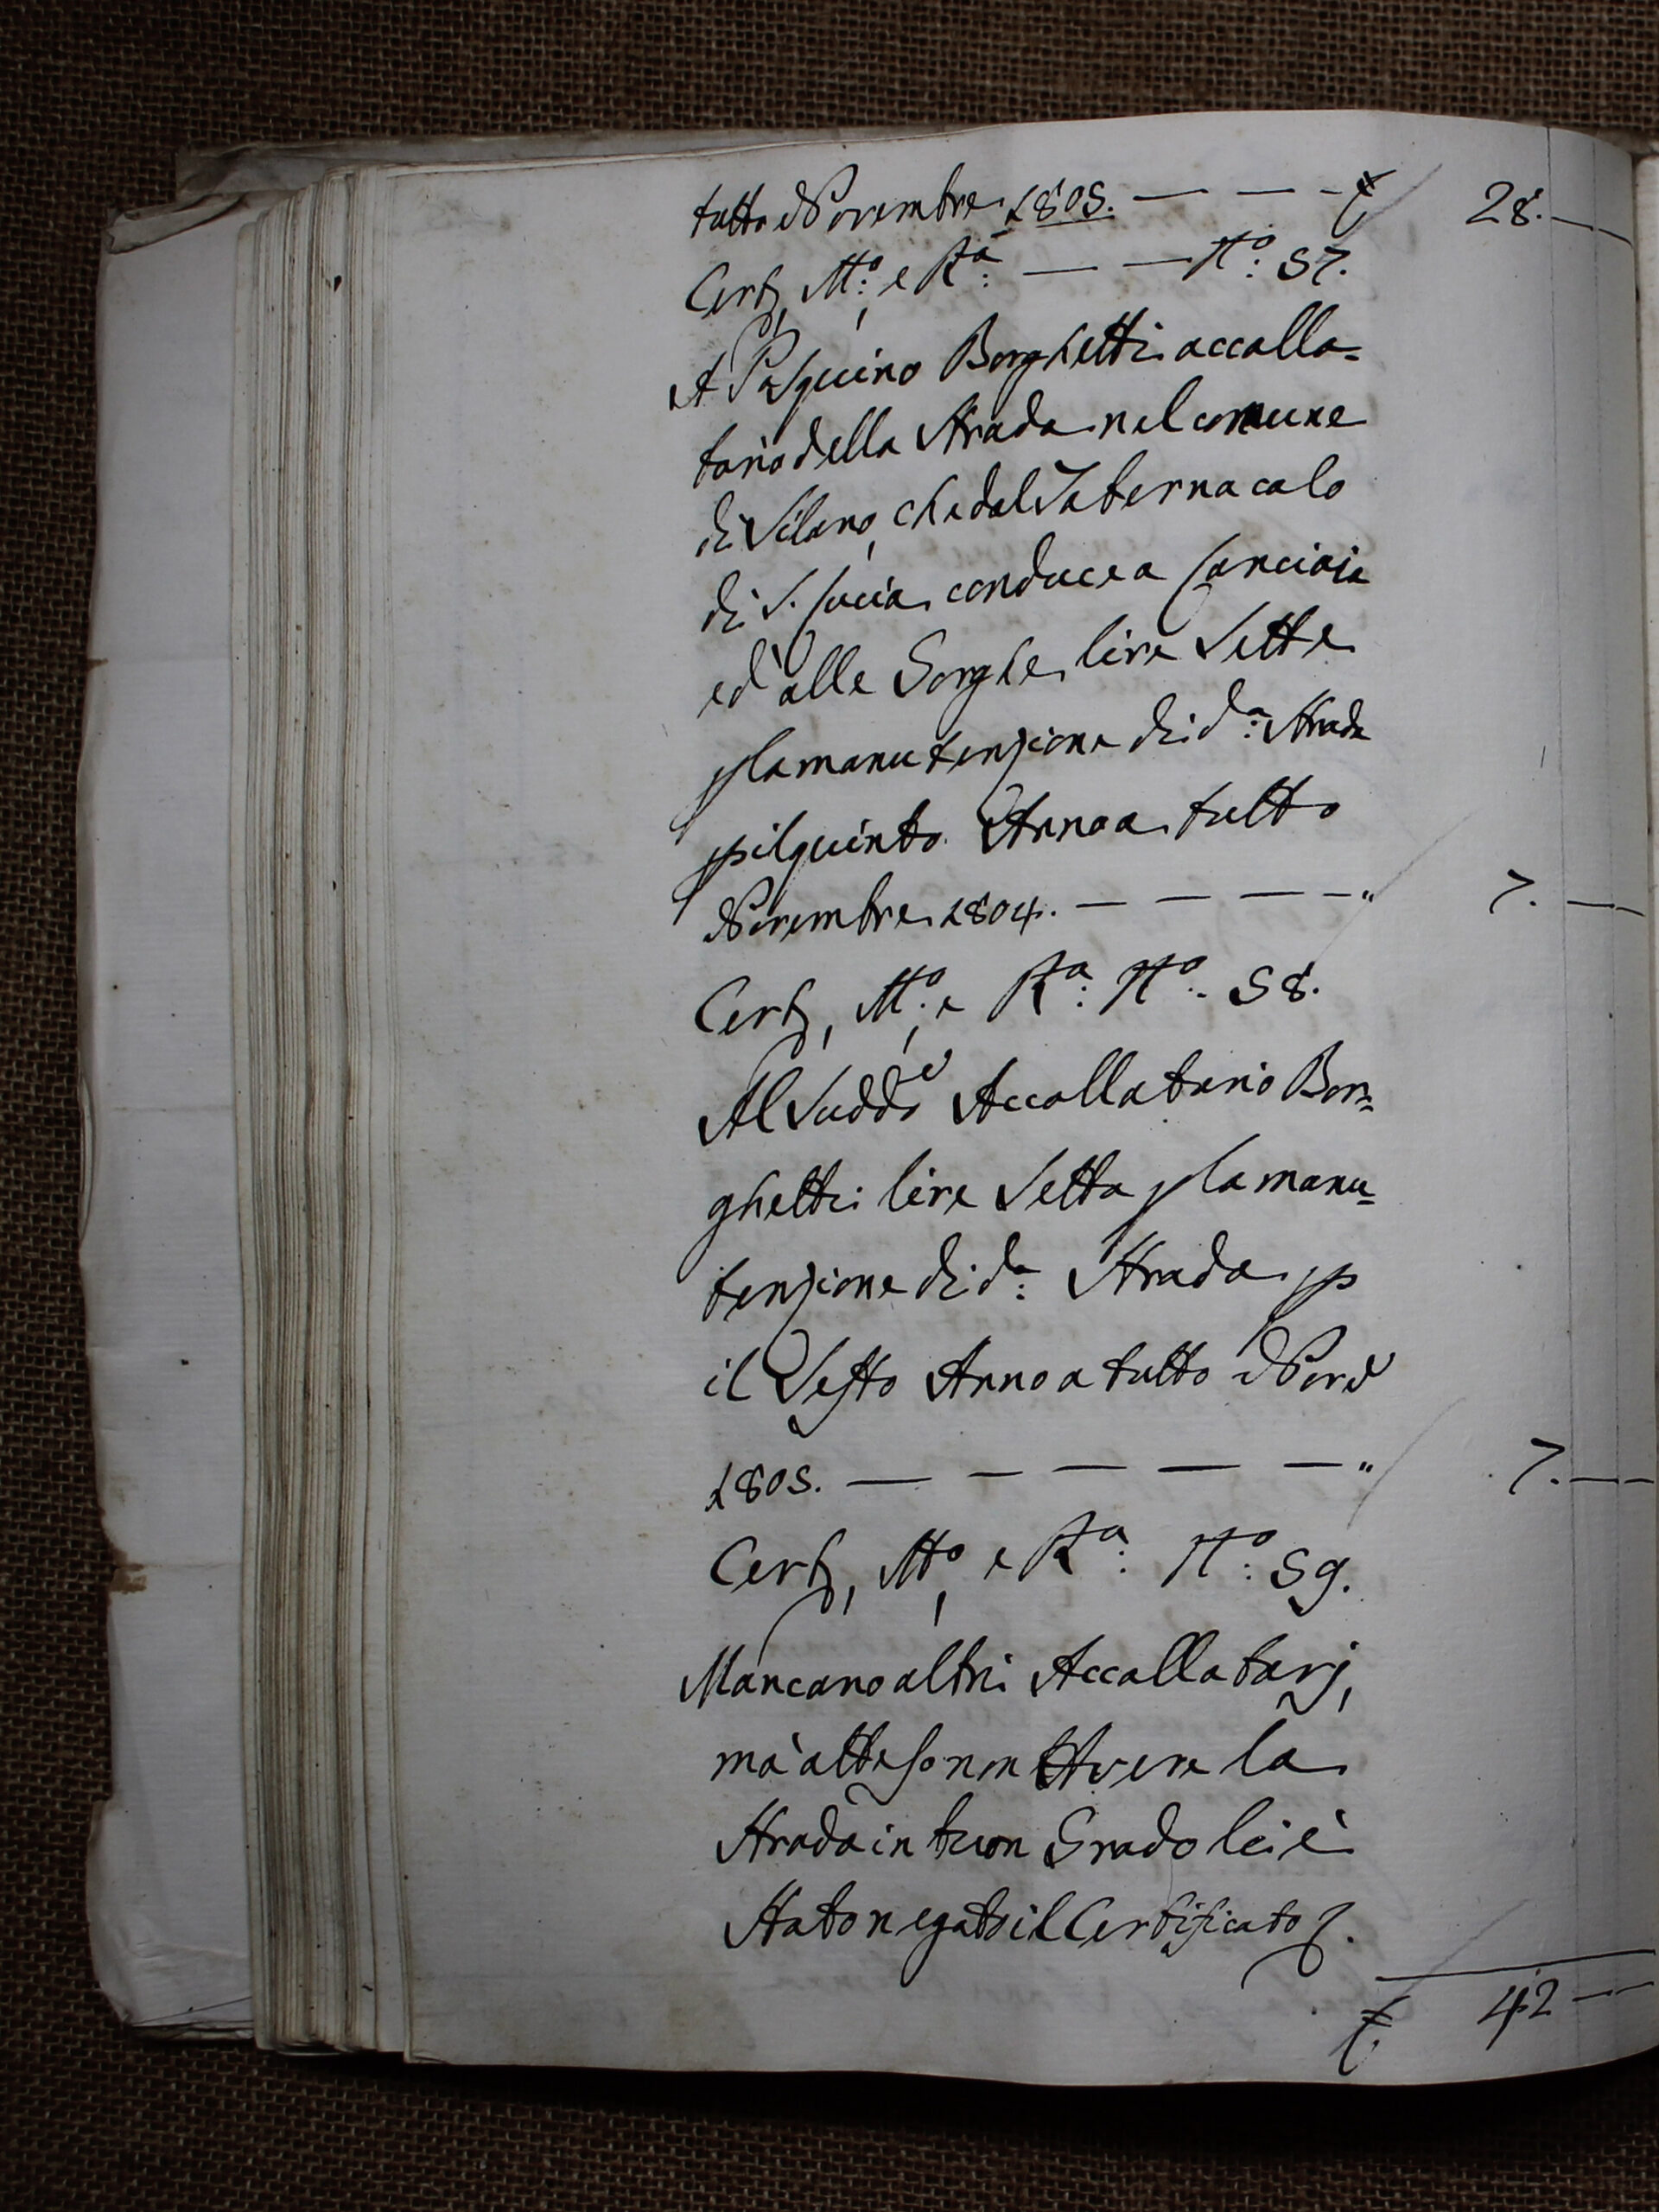 tutto Novembre 1805. — — - £ 28. —
Cert, M:º e Rª: — — Nº: 57.
A Pasquino Borghetti accolla=
tario della Strada nel comune
di Silano, che dal Tabernacolo
di S. Lucia conduce a Lanciaia
ed alle Gorghe lire Sette
p la manutenzione di dª: Strada
p il quinto Anno a tutto
Novembre 1804. — — — — " 7. —
Cert, M:º e Rª: Nº: 58.
Al Suddº Accollatario Bor=
ghetti lire Sette p la manu=
tenzione di dª: Strada p
il Sesto Anno a tutto Nove
1805. — — — — — " 7. —
Cert, Mº, e Rª: Nº: 59.
Mancano altri Accollatarj,
mà atteso non Avere la
Strada in buon Grado lei è
Stato negato il Certificato.
£ 42 —